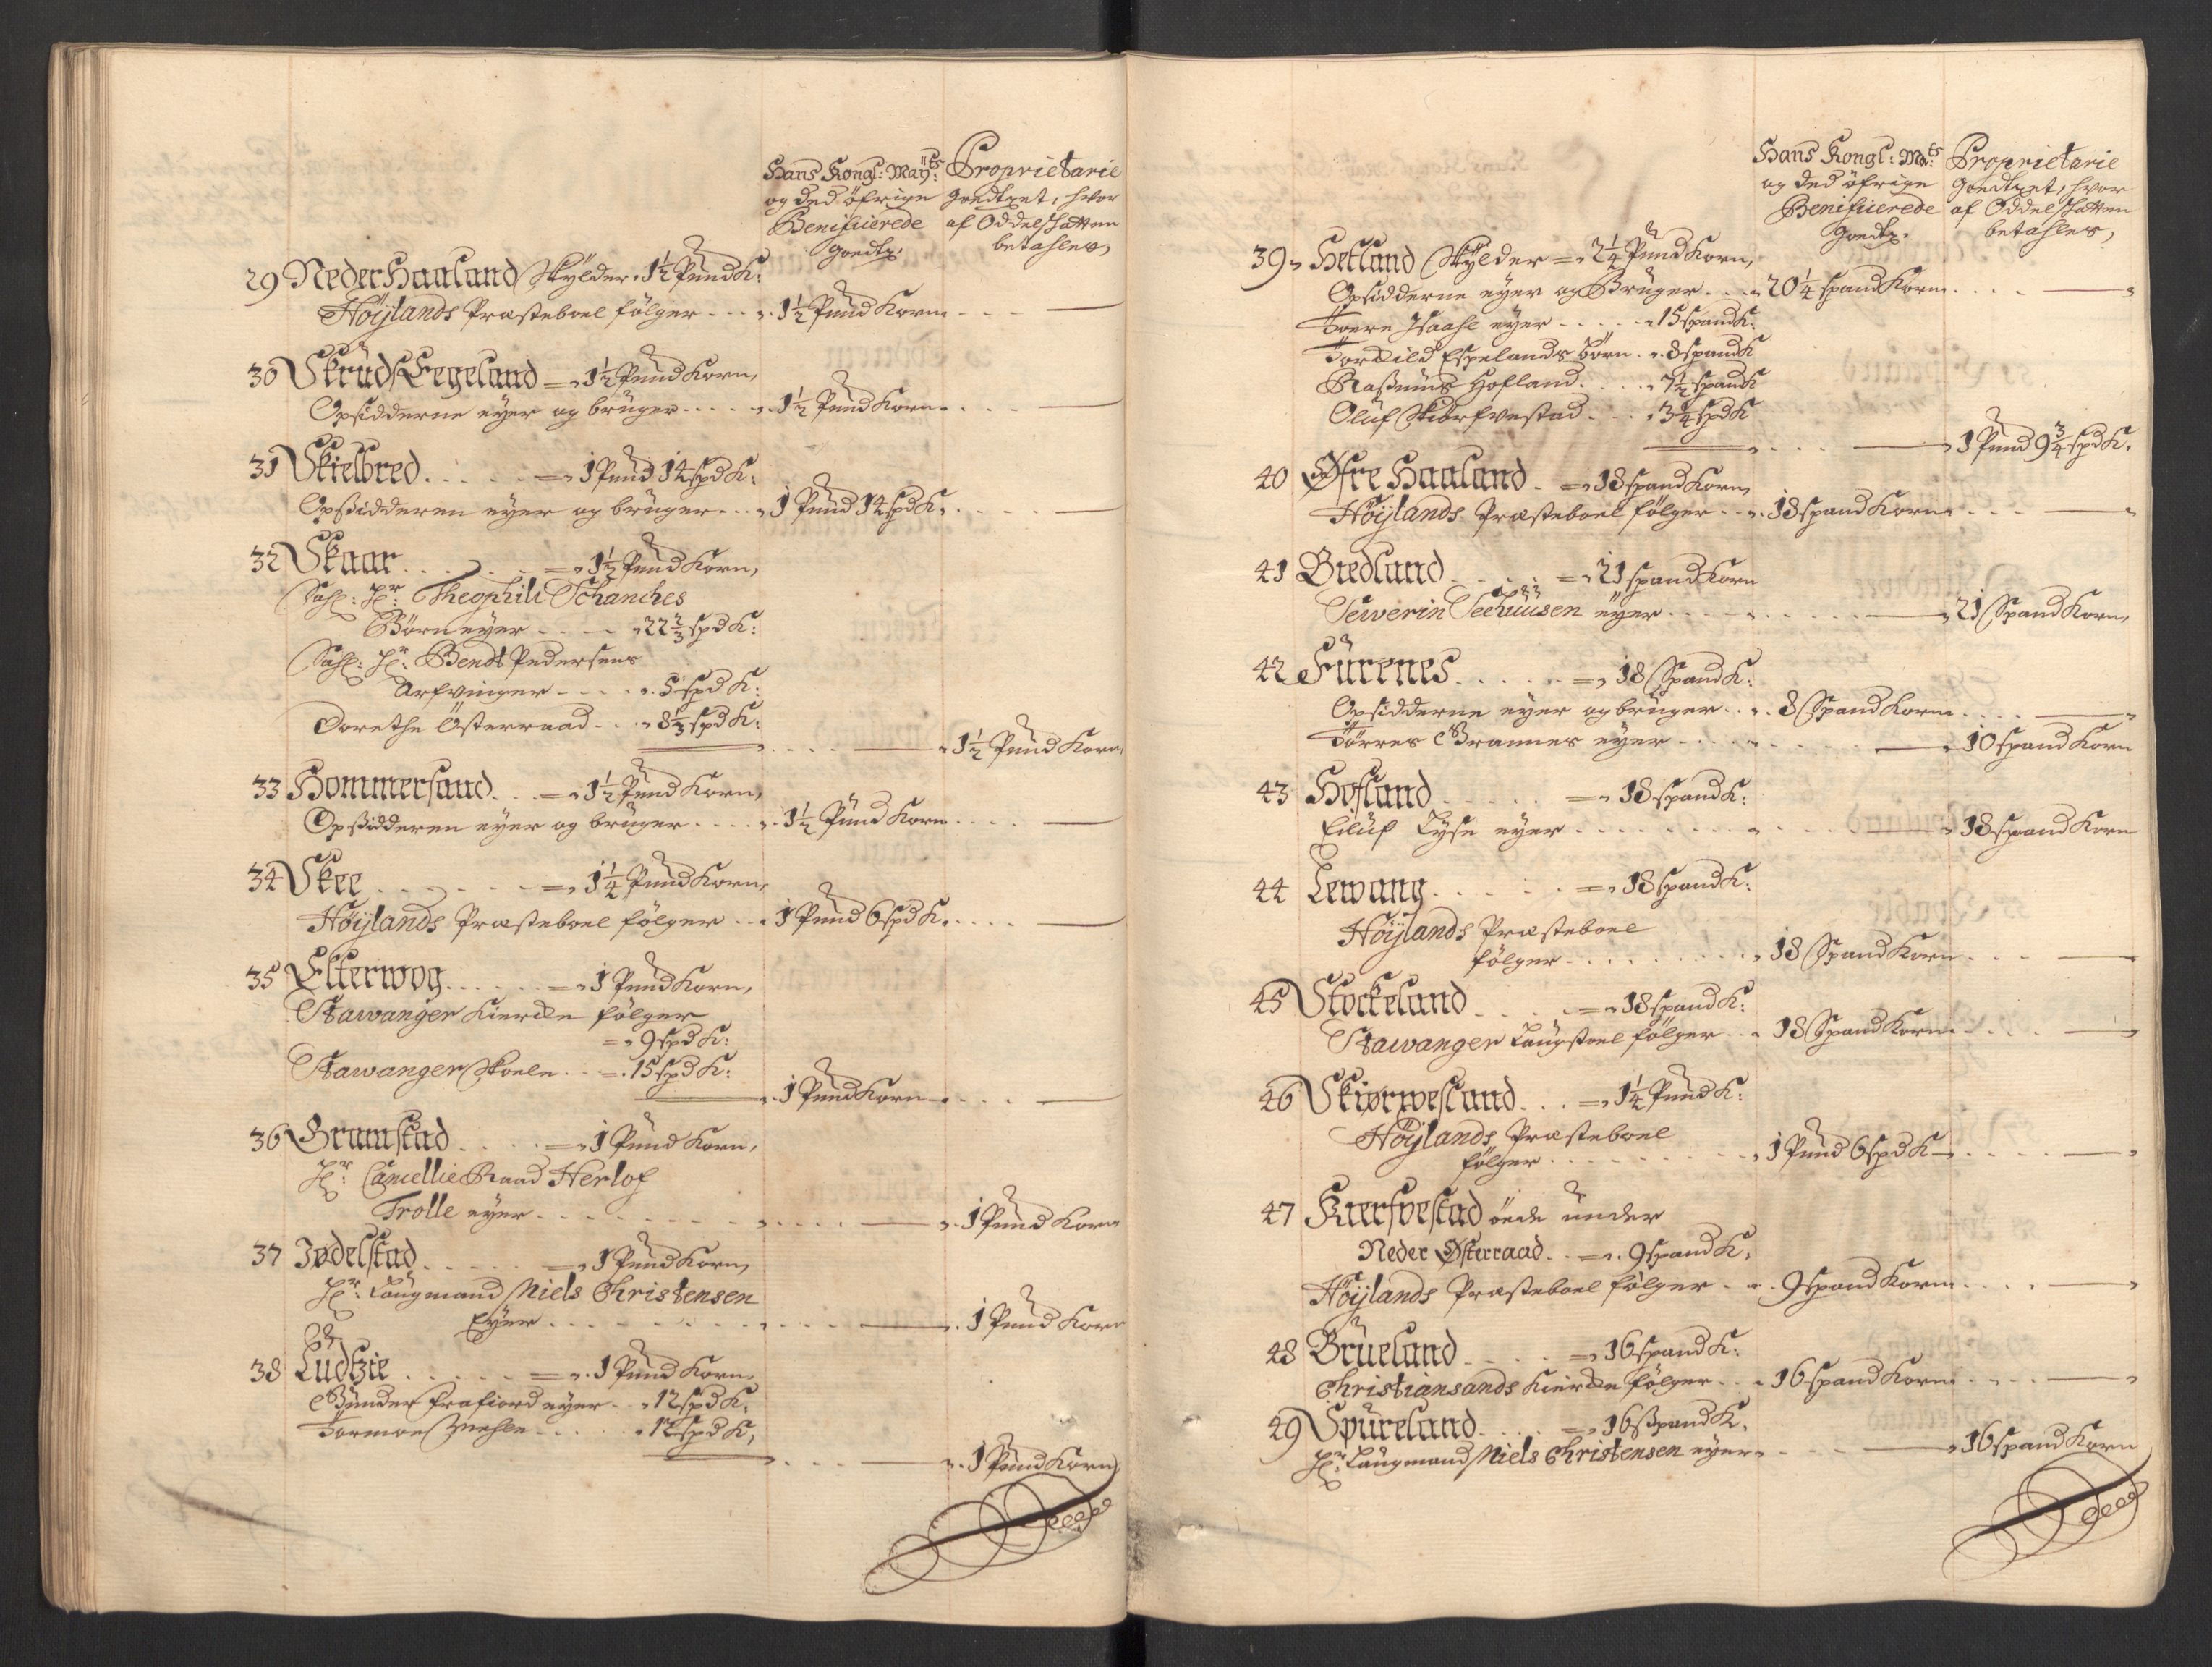 Hans Kongl: Maÿts: Proprietarie
og ded öfrige Goedtzet, hvor
Benificerede af Oddelskatten
Goedtz. betahles,
29 Neder Haaland Skÿlder . 1½ Pund K:
Höÿlands Præsteboel fölger - - - . 1½ Pund Korn - - -
30 Skruds Eegeland = . 1½ Pund Korn,
Opsidderne eÿer og brüger . . . . . 1½ Pund Korn . . .
31 Skielbred . . . . = . 1 Pund 14 spd K:
Opsidderen eÿer og brüger . . . 1 Pund 14 spd K. . . .
32 Skaar . . . . . = . 1½ Pund Korn,
Sahl: Hr: Theophili Schanches
Börn eÿer . . . . 22⅔ spd K:
Sahl: Hr: Bendt Pedersens
Arfvinger - - - . 5 spd K:
Dorethe Österraad . . . 8⅓ spd K:
. . . . 1½ Pund Korn,
33 Hommersand . . . = . 1½ Pund Korn,
Opsidderen eÿer og brüger . . . . 1½ Pund Korn . . . .
34 Skee . . . . . = . 1¼ Pund Korn,
Höÿlands Præsteboel fölger . . . 1 Pund 6 spd K. . . . .
35 Elterwog . . . . . = . 1 Pund Korn,
Stawanger Kiercke fölger
= . 9 spd K:
Stawanger Skoele . . = . 15 spd K:
. 1 Pund Korn . . . .
36 Gramstad . . . . = . 1 Pund Korn,
Hr: Cancellie Raad Herlof
Trolle eÿer . . . . . . . . . . 1 Pund Korn
37 Jødelstad . . . . . = . 1 Pund Korn,
Hr: Laugmand Niels Christensen
Eÿer . . . . . . . . . . 1 Pund Korn
38 Ludtzie . . . . . = . 1 Pund Korn,
Gunder Frafiord eÿer . . . 12 spd K.
Tormoe . . . . 12 spd K,
. . . . . 1 Pund Korn
Hans Kongl: Mats: Proprietarie
og ded öfrige Goedtzet, hvor
Benificerede af Oddelskatten
Goedtz. betahles,
39 . Hetland Skÿlder = . 2¼ Pund Korn,
Opsidderne eÿer og Brüger . . . 20¼ spand Korn . . . .
Toere Isaahl eÿer . . . . . 15 spand K:
Torckild Espelands börn . . 8 spand K
Rasmus Hofland . . . . 7½ spand K
Oluf Skiörfvestad . . . 3¾ spd K
. . . . 1 Pund 9¾ spd K.
40 Øfre Haaland . = . 18 spand Korn,
Höÿlands Præsteboel fölger . . . 18 spand Korn . . .
41 Bredland . . . . = . 21 spand Korn
Sewerin Seehuusen eÿer . . . . . . . . . 21 Spand Korn,
42 Furenes . . . . . = . 18 Spand K:
Opsidderne eÿer og brüger . . . 8 Spand Korn . . . .
Törres Brannes eÿer . . . . . . . . . 10 spand Korn
43 Hofland . . . . . = . 18 spand K:
Eiluf Lÿse eÿer . . . . . . . . . . 18 spand Korn
44 Lewang . . . . . = . 18 spand K:
Höÿlands Præsteboel
fölger . . . . . . . . . 18 Spand Korn . . . .
45 Stockeland . . . . = . 18 spand K:
Stawanger Laugstoel fölger . . . 18 Spand Korn . . . .
46 Skiørwesland . . . = . 1¼ Pund K:
Höÿlands Præsteboel
fölger . . . . . . . . . 1 Pund 6 spd K . . . .
47 Kierfvestad öede under
Neder Østerraad . . = . . 9 spand K,
Höÿlands Præsteboel fölger . . . 9 spand Korn . . . .
48 Brueland . . . . = . 16 spand K:
Christiansands Kiercke fölger . . . 16 spand Korn . . . .
49 Spureland . . . . = . 16 Spand K.
Hr: Laugmand Niels Christensen eÿer . . . . . . 16 spand Korn